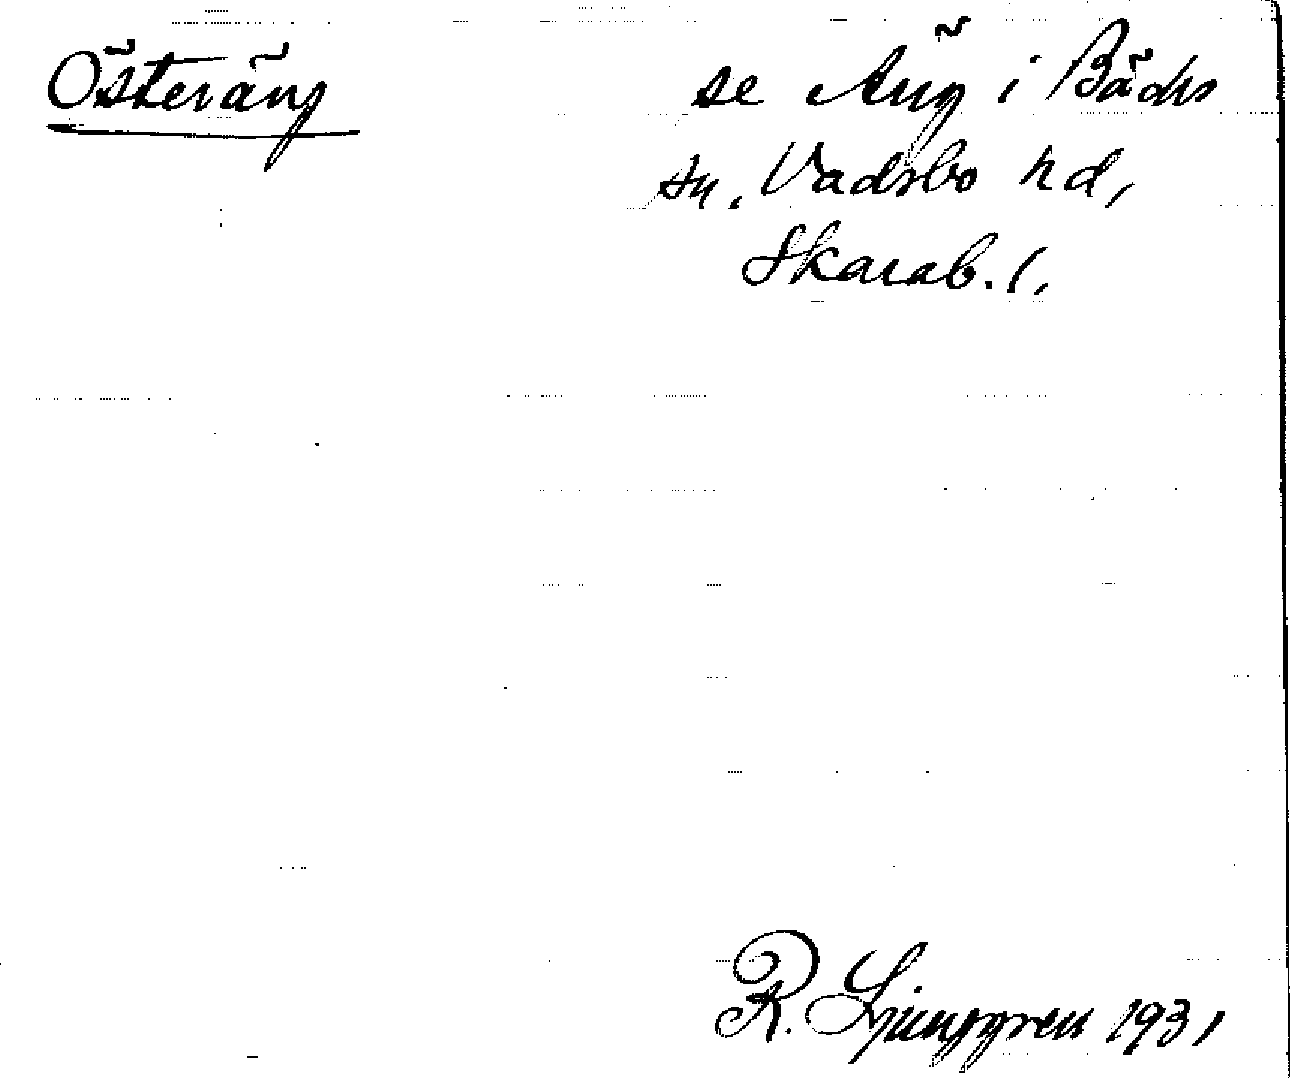 Österäng
se Äng i Bäcks
sn. Vadsbo hd,
Skarab. l,
R. Ljunggren 1931